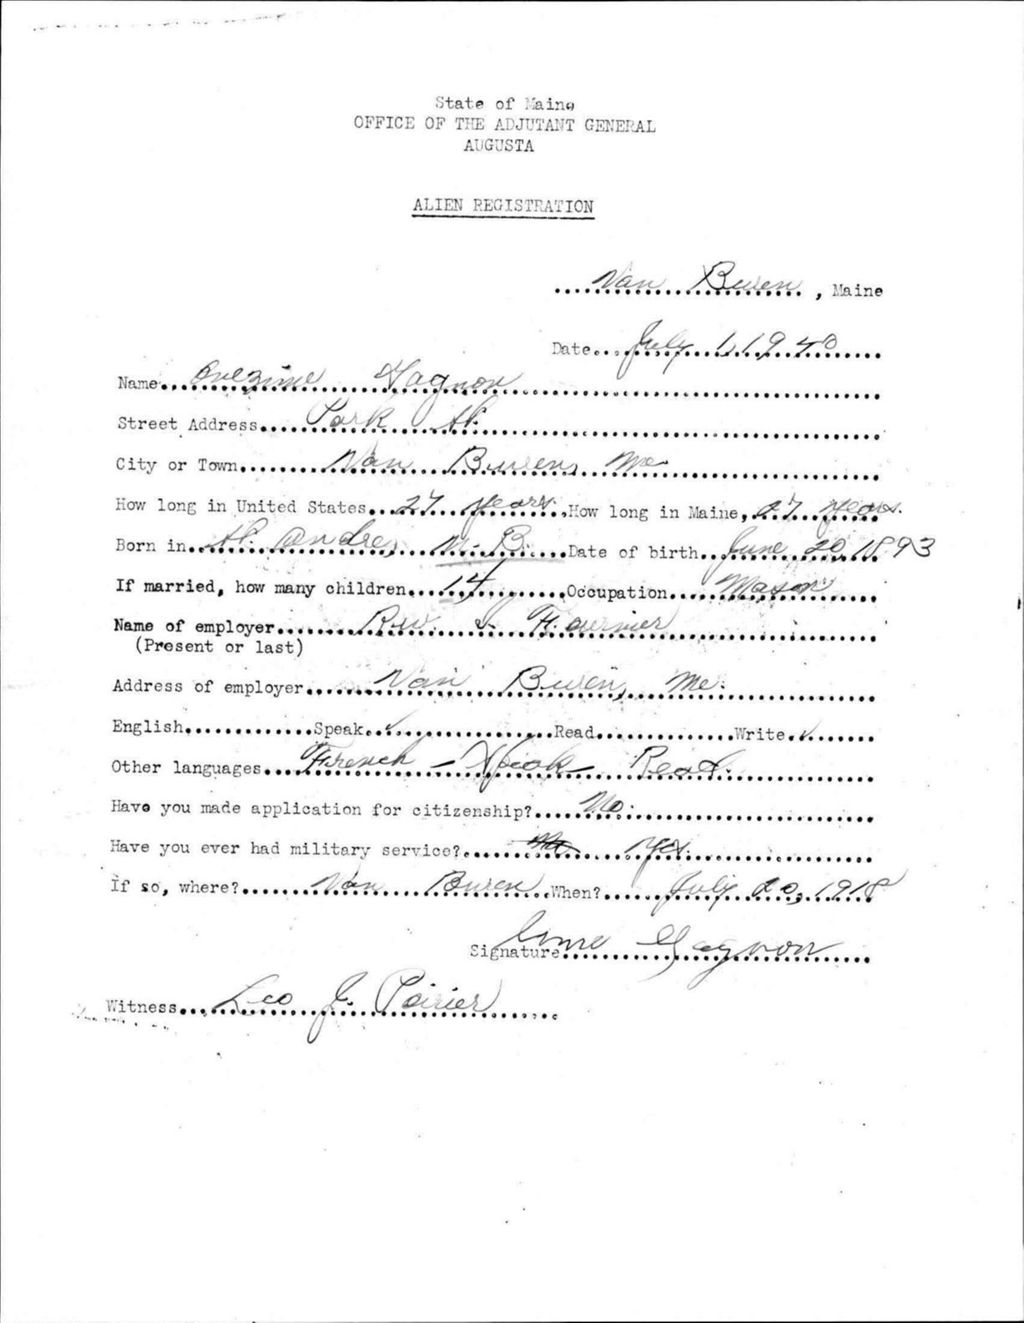 State of Maine
OFFICE OF THE ADJUTANT GENERAL
AUGUSTA
ALIEN REGISTRATION
Van Buren, Maine
Date July 1, 1940
Name Onezime Gagnon
Street Address Park St.
City or Town Van Buren, Me
How long in United States 27 years. How long in Maine, 27 years.
Born in St. Andre, N. B. Date of birth June 20, 1893
If married, how many children 14 Occupation Mason
Name of employer Rev. Fournier
(Present or last)
Address of employer Van Buren, Me.
English Speak ✓ Read Write ✓
Other languages French – Speak – Read.
Have you made application for citizenship? No.
Have you ever had military service? Yes.
If so, where? Van Buren When? July 20, 1918
Signature Gagnon
Witness Leo J. Poirier